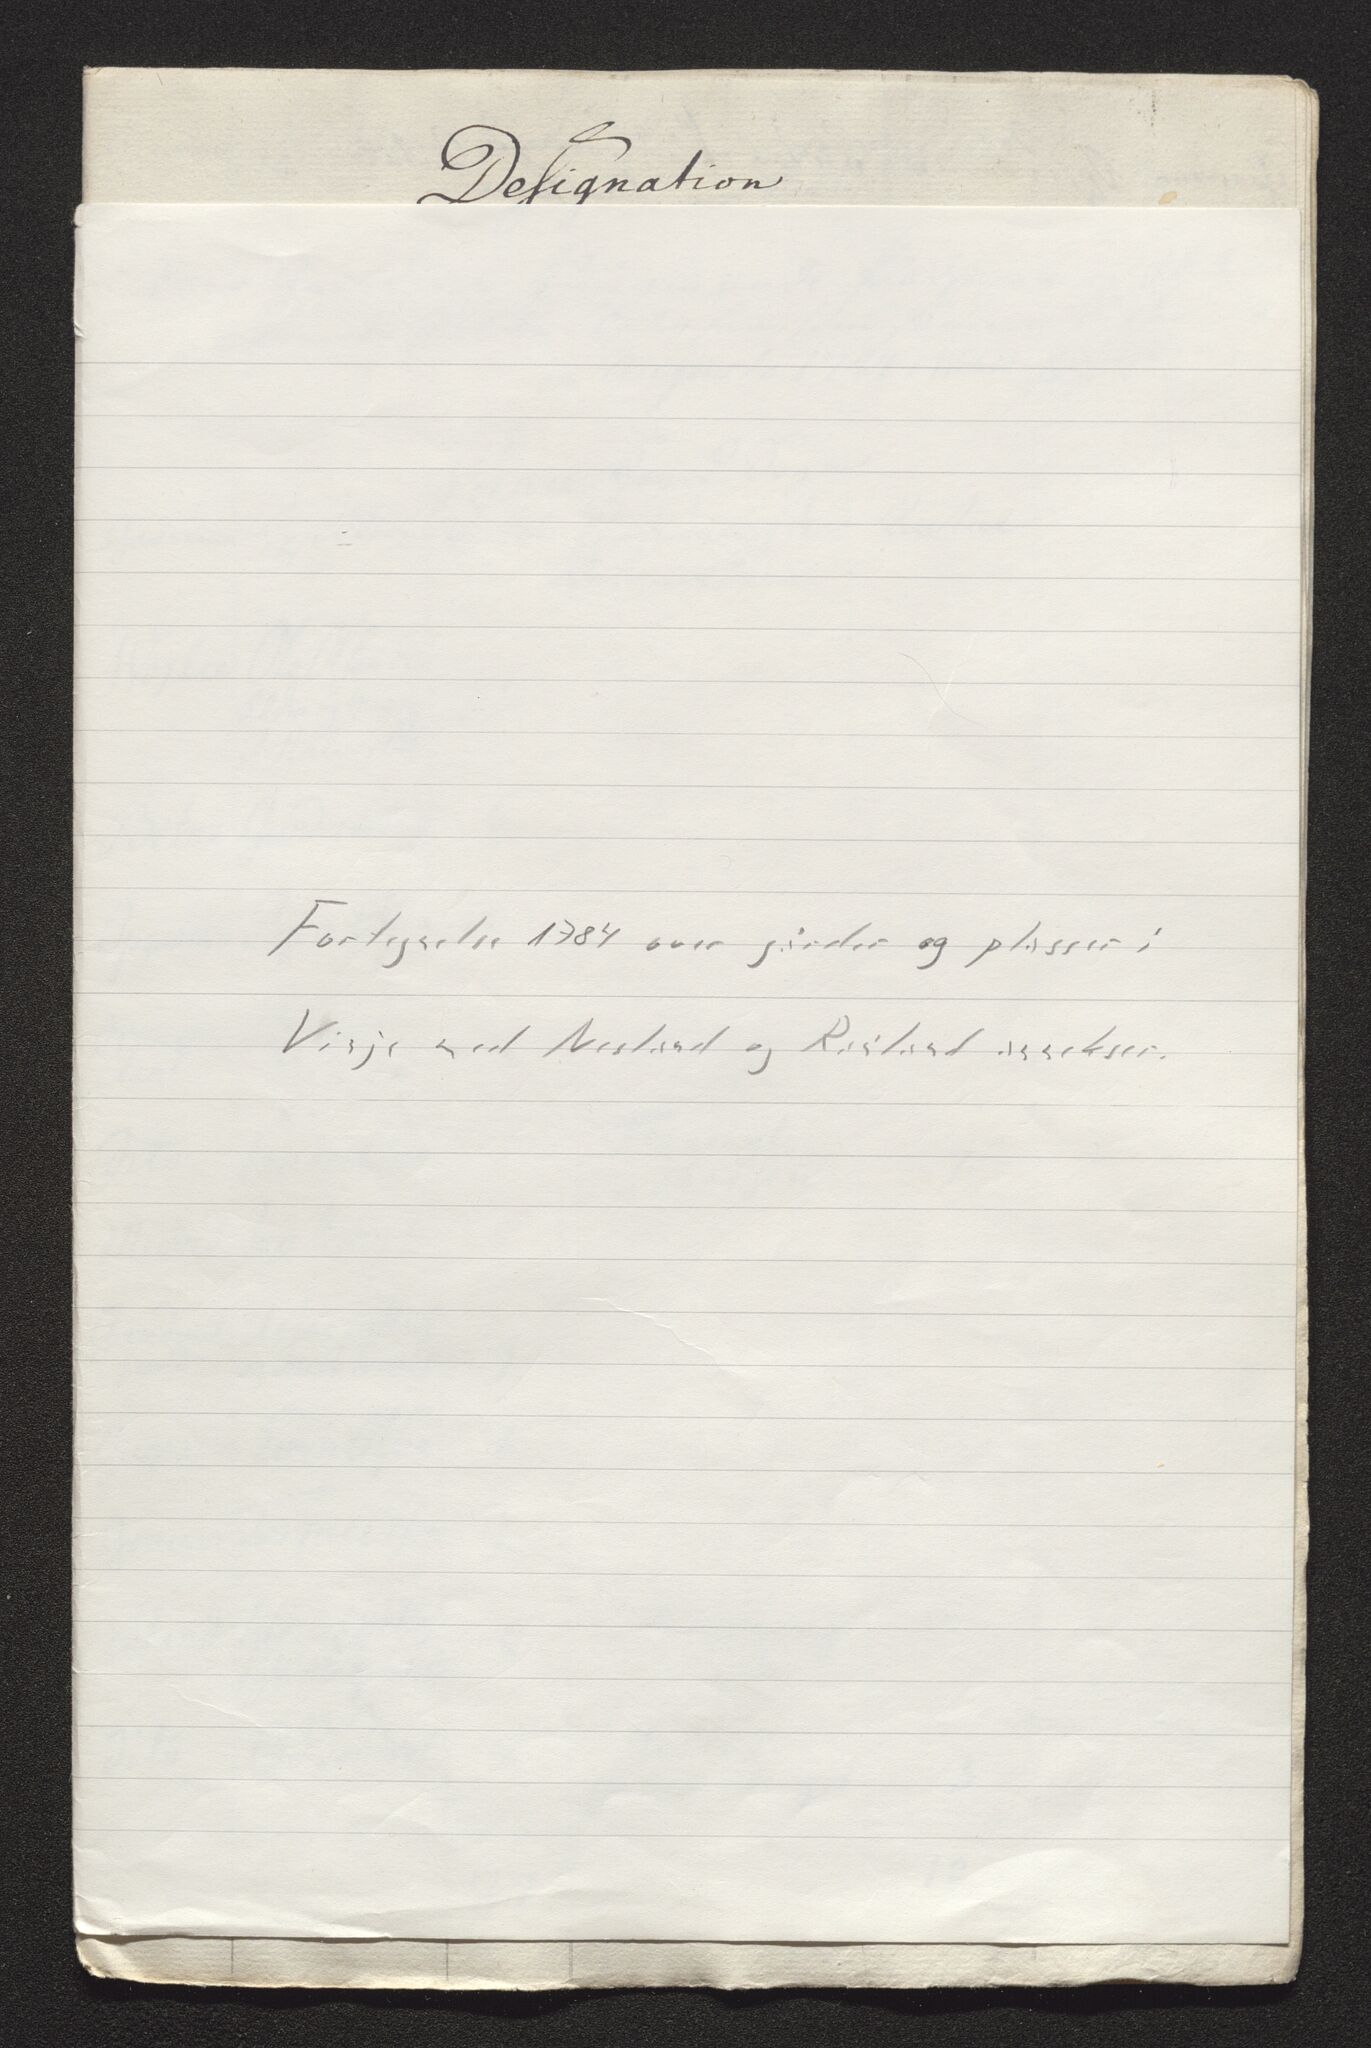 Designation
Fortegnelse 1784 over gårder og plasser i
Vinje med Nesland og Rauland annekser.